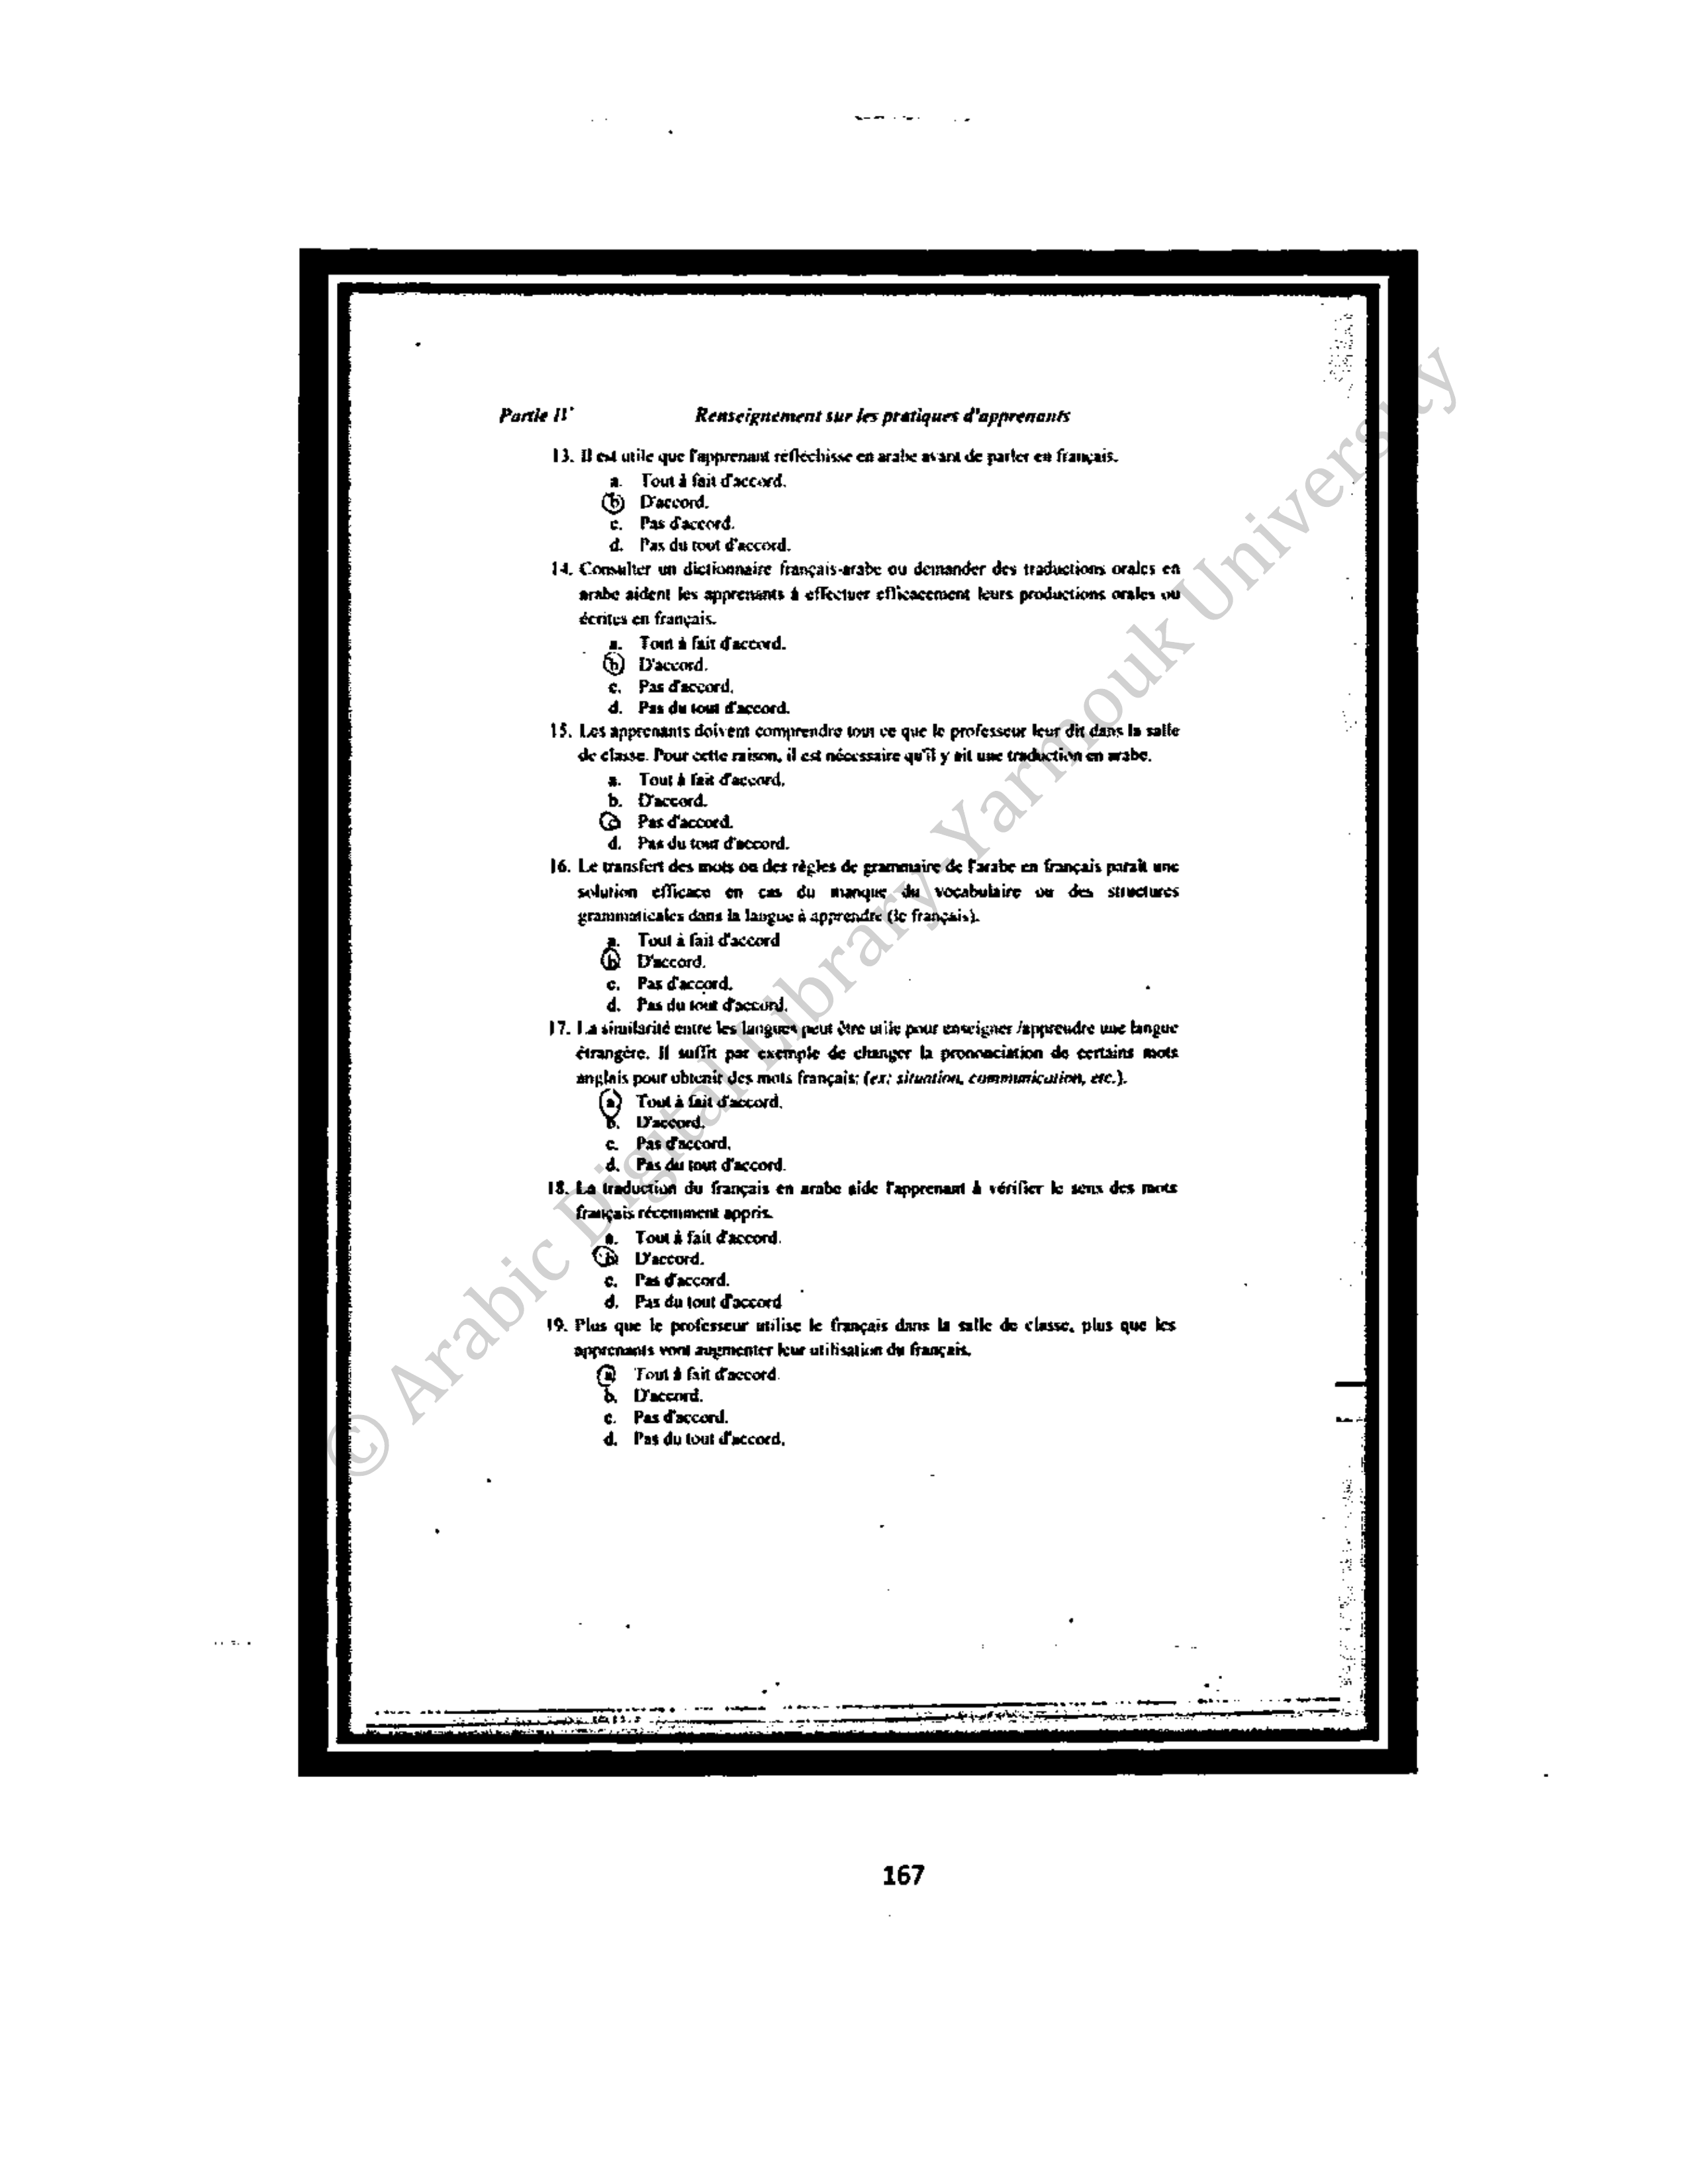 Partie II Renseignement sur les pratiques d'apprenants
13. Il est utile que l'apprenant réfléchisse en arabe avant de parler en français.
a. Tout à fait d'accord.
b. D'accord.
c. Pas d'accord.
d. Pas du tout d'accord.
14. Consulter un dictionnaire français-arabe ou demander des traductions orales en
arabe aident les apprenants à effectuer efficacement leurs productions orales ou
écrites en français.
a. Tout à fait d'accord.
b. D'accord.
c. Pas d'accord.
d. Pas du tout d'accord.
15. Les apprenants doivent comprendre tout ce que le professeur leur dit dans la salle
de classe. Pour cette raison, il est nécessaire qu'il y ait une traduction en arabe.
a. Tout à fait d'accord.
b. D'accord.
c. Pas d'accord.
d. Pas du tout d'accord.
16. Le transfert des mots ou des règles de grammaire de l'arabe en français paraît une
solution efficace en cas du manque du vocabulaire ou des structures
grammaticales dans la langue à apprendre (le français).
a. Tout à fait d'accord
b. D'accord.
c. Pas d'accord.
d. Pas du tout d'accord.
17. La similarité entre les langues peut être utile pour enseigner /apprendre une langue
étrangère. Il suffit par exemple de changer la prononciation de certains mots
anglais pour obtenir des mots français: (ex: situation, communication, etc.).
a. Tout à fait d'accord.
b. D'accord.
c. Pas d'accord.
d. Pas du tout d'accord.
18. La traduction du français en arabe aide l'apprenant à vérifier le sens des mots
français récemment appris.
a. Tout à fait d'accord.
b. D'accord.
c. Pas d'accord.
d. Pas du tout d'accord
19. Plus que le professeur utilise le français dans la salle de classe, plus que les
apprenants vont augmenter leur utilisation du français.
a. Tout à fait d'accord.
b. D'accord.
c. Pas d'accord.
d. Pas du tout d'accord.
© Arabic Digital Library-Yarmouk University
167